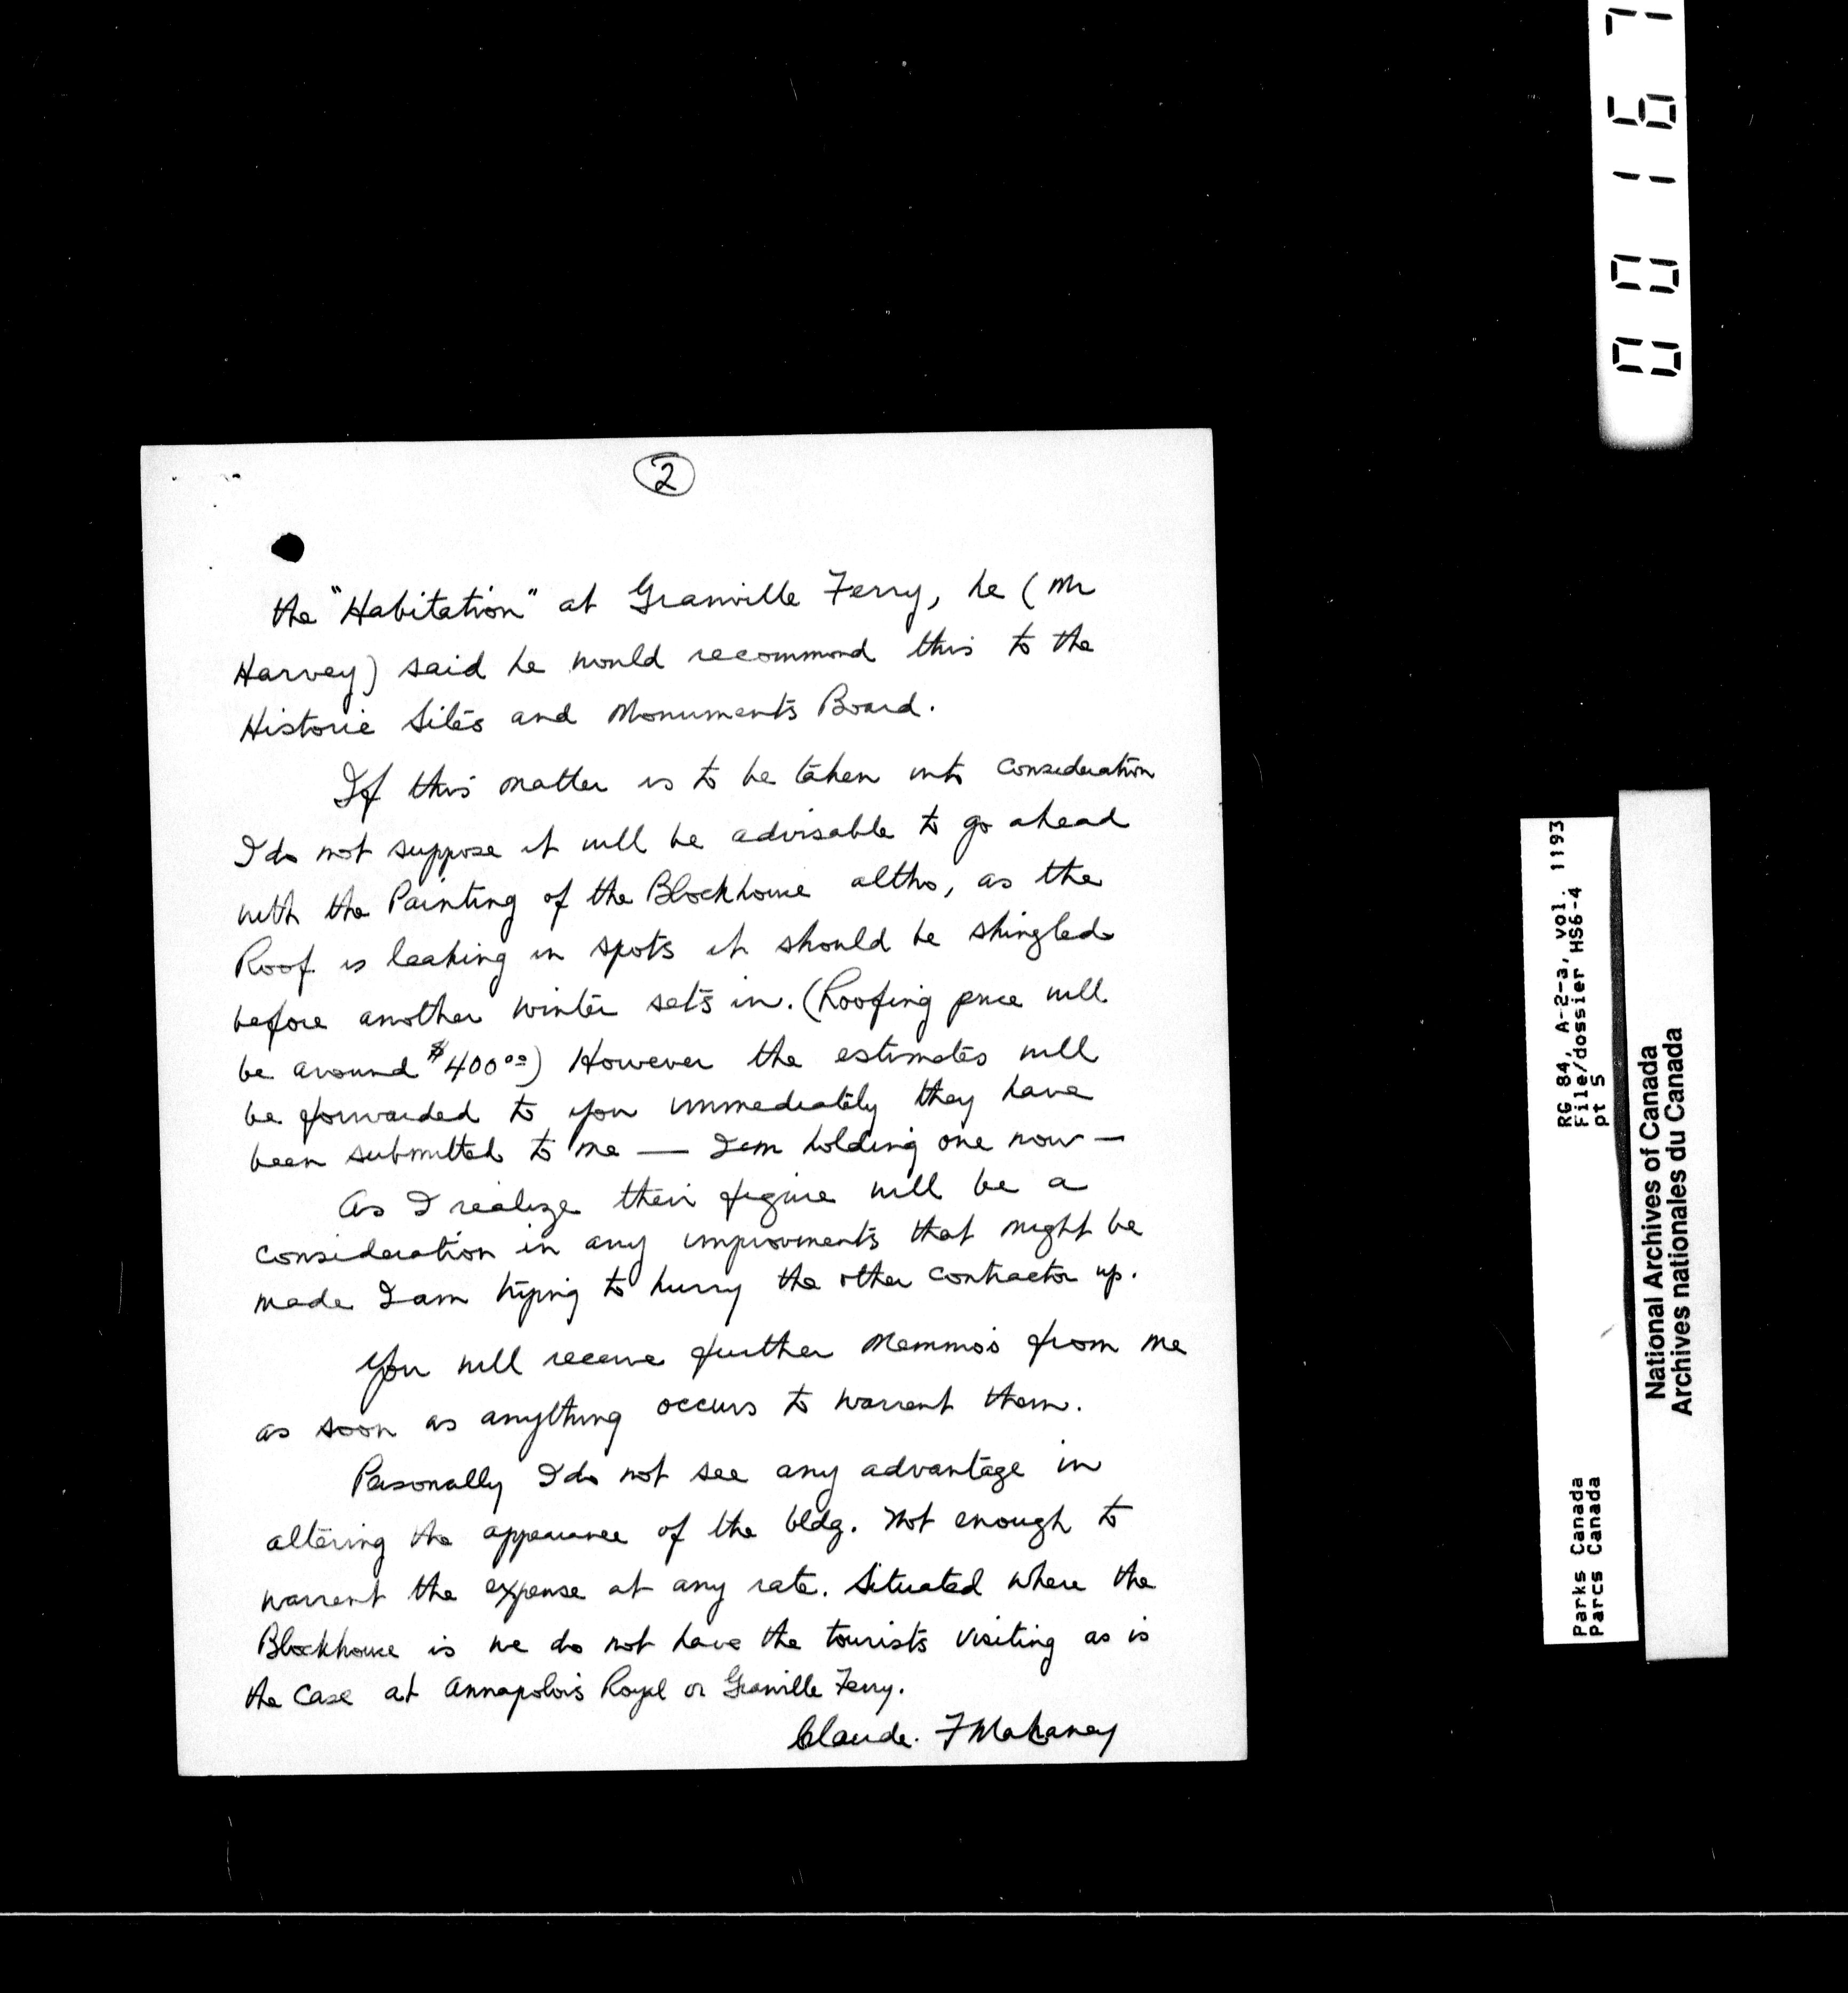 2
the "Habitation" at Granville Ferry, he (Mr
Harvey) said he would recommend this to the
Historic Sites and Monuments Board.
If this matter is to be taken into consideration
I do not suppose it will be advisable to go ahead
with the Painting of the Blockhouse altho, as the
Roof is leaking in spots it should be shingled
before another winter sets in. (Roofing price will
be around $400.00) However the estimates will
be forwarded to you immediately they have
been submitted to me — I am holding one now —
As I realize their figure will be a
consideration in any improvments that might be
made I am trying to hurry the other contractor up.
You will receive further Memmos from me
as soon as anything occurs to warrent them.
Personally I do not see any advantage in
altering the appearance of the bldg. Not enough to
warrent the expense at any rate. Situated where the
Blockhouse is we do not have the tourists visiting as is
the case at Annapolois Royal or Granville Ferry.
Claude. F Mahaney
00167
RG 84, A-2-a, vol. 1193
File/dossier HS6-4
pt 5
Parks Canada
Parcs Canada
National Archives of Canada
Archives nationales du Canada